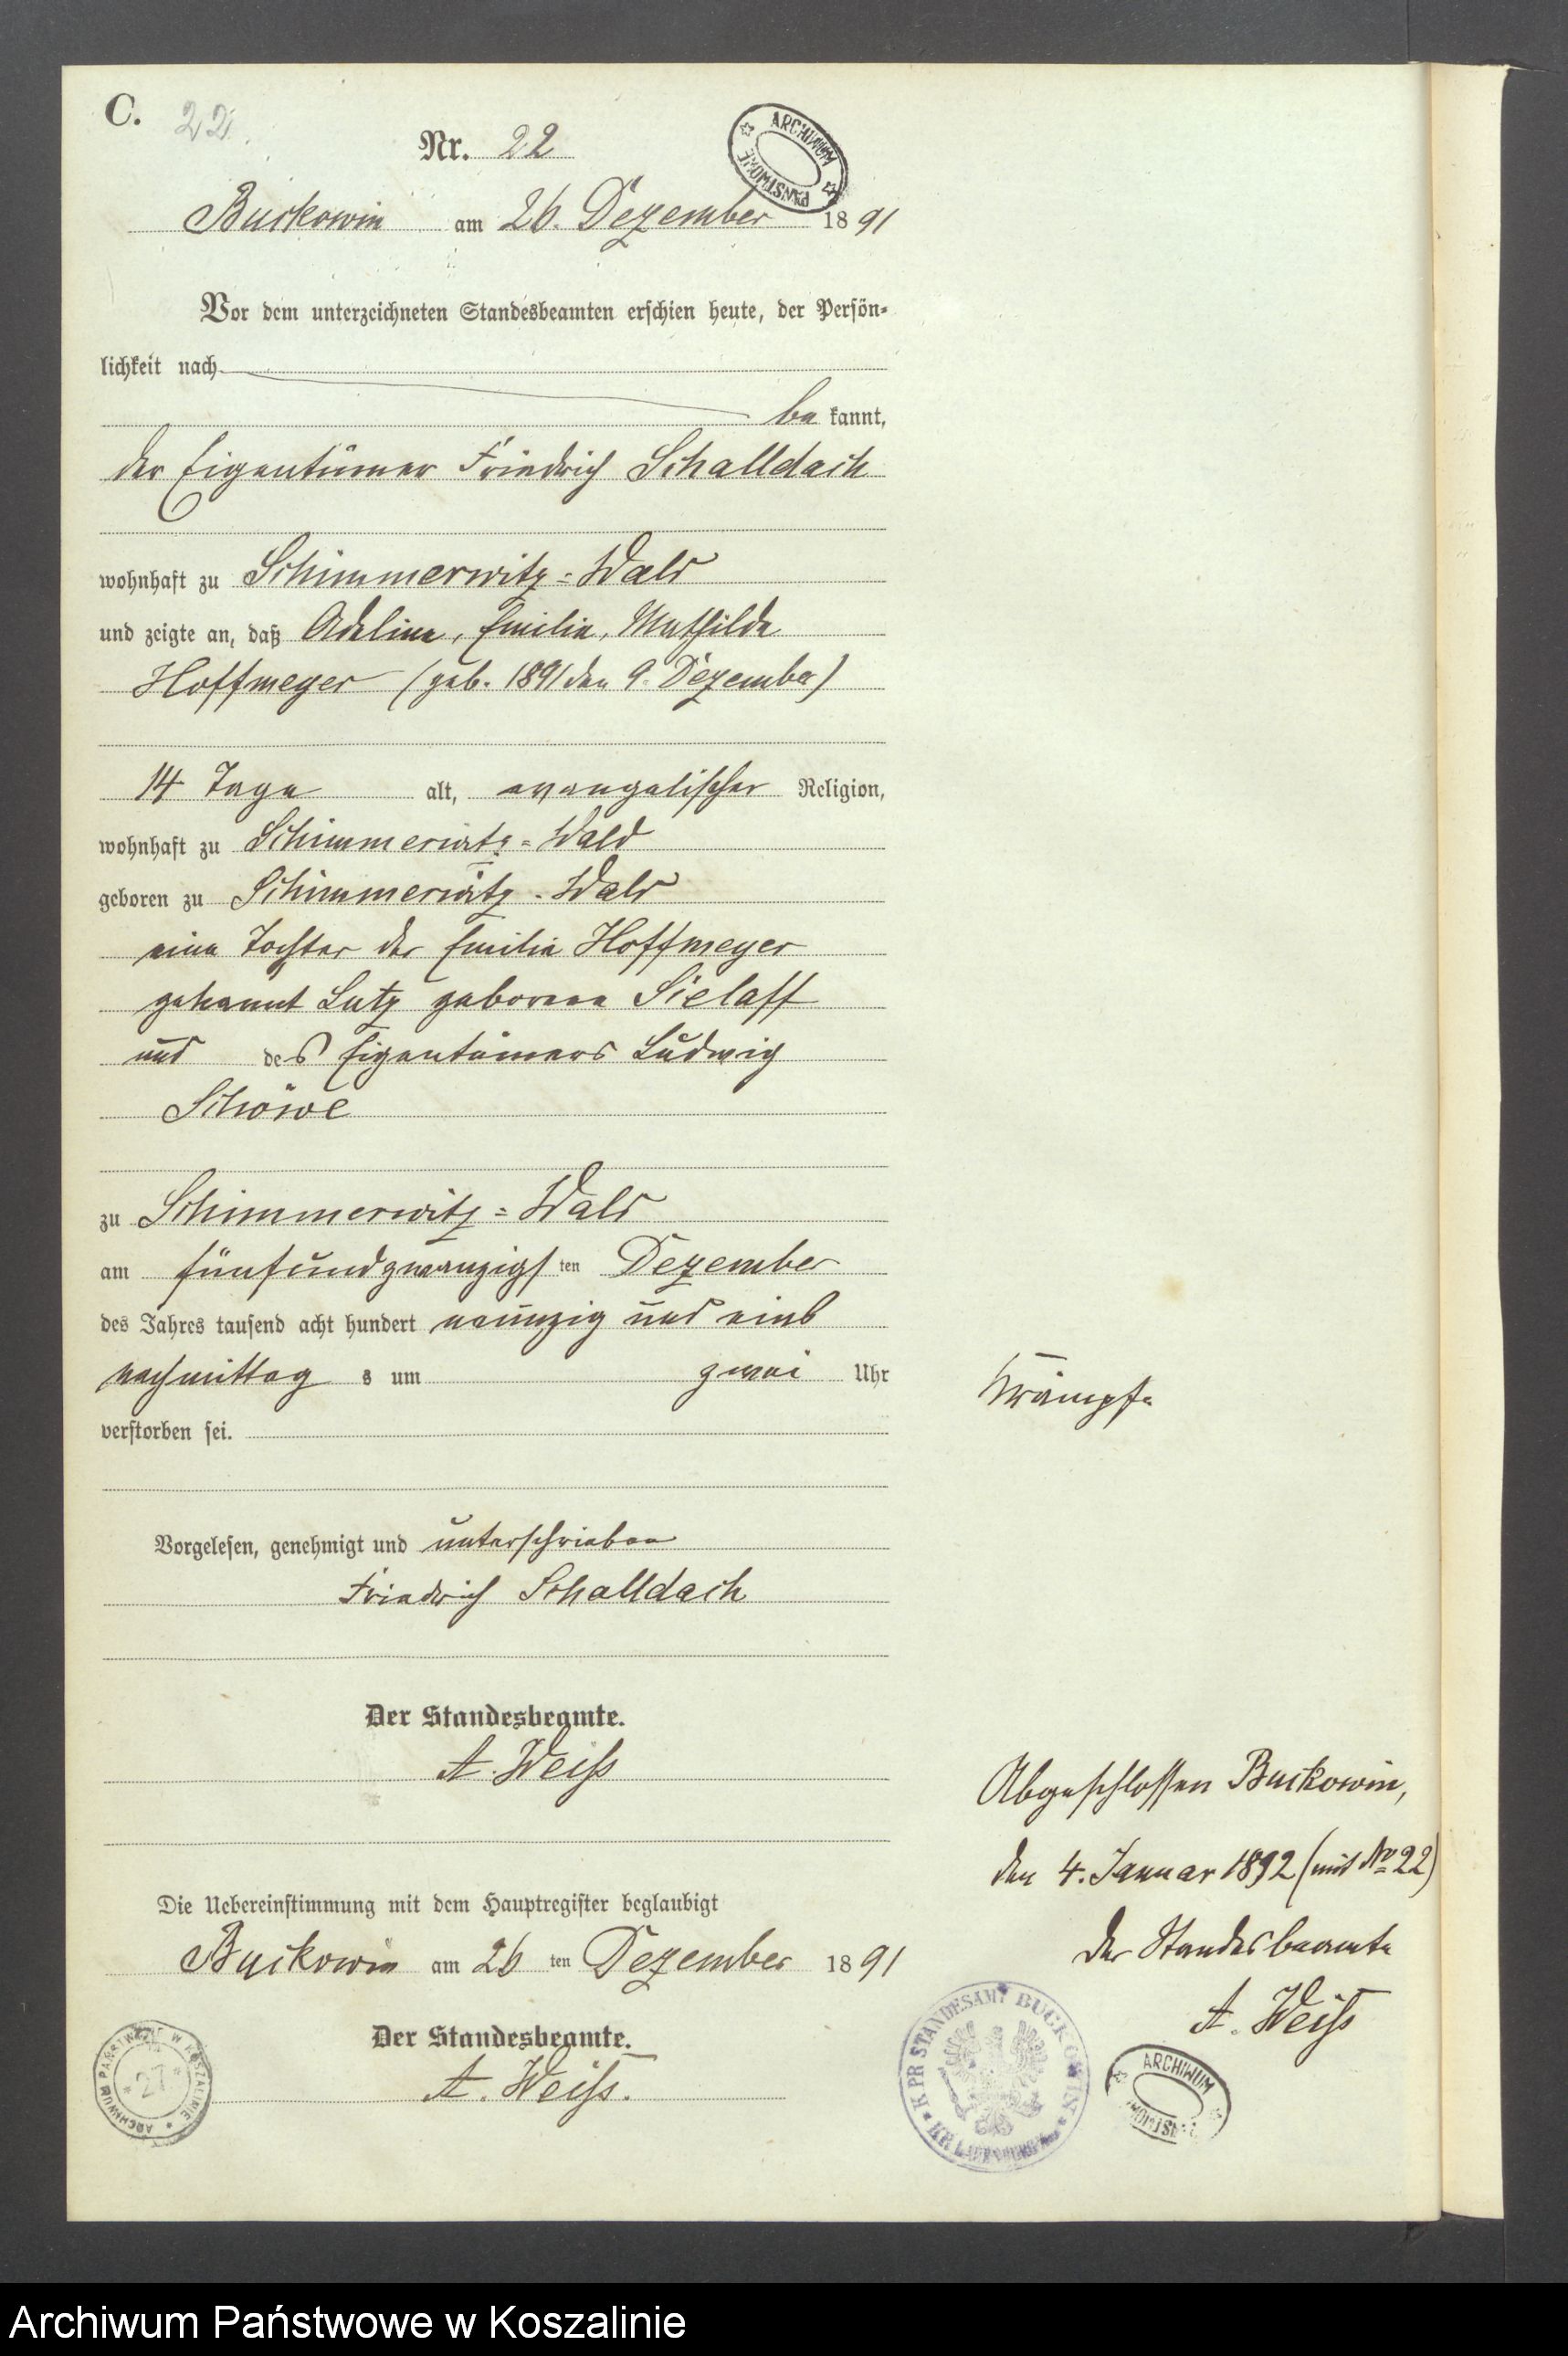 C.
22.
Nr. 22
ARCHIWUM PAŃSTWOWE
Buckowin am 26. Dezember 1891
Vor dem unterzeichneten Standesbeamten erschien heute, der Persön-
lichkeit nach
be kannt,
der Eigentümer Friedrich Schalldach
wohnhaft zu Schimmerwitz=Wald
und zeigte an, daß Adeline, Emilie, Mathilde
Hoffmeyer (geb. 1891 den 9. Dezember)
14 Tage alt, evangelischer Religion,
wohnhaft zu Schimmerwitz=Wald
geboren zu Schimmerwitz-Wald
eine Tochter der Emilie Hoffmeyer
Lutz geborene Sielaff
und des Eigentümers Ludwig
Schöwe
zu Schimmerwitz=Wald
am fünfundzwanzigsten Dezember
des Jahres tausend acht hundert neunzig und eins
nachmittags um zwei Uhr
verstorben sei.
Krämpfe
Vorgelesen, genehmigt und unterschrieben
Friedrich Schalldach
Der Standesbeamte.
A. Weiß
Die Uebereinstimmung mit dem Hauptregister beglaubigt
Buckowin am 26 ten Dezember 1891
Der Standesbeamte.
A. Weiß.
Abgeschlossen Buckowin,
den 4. Januar 1892 (mit No 22)
Der Standesbeamte
A. Weiß
ARCHIWUM PAŃSTWOWE W KOSZALINIE
27
K. PR. STANDESAMT BUCKOWIN
KR. LAUENBURG
ARCHIWUM
Archiwum Państwowe w Koszalinie